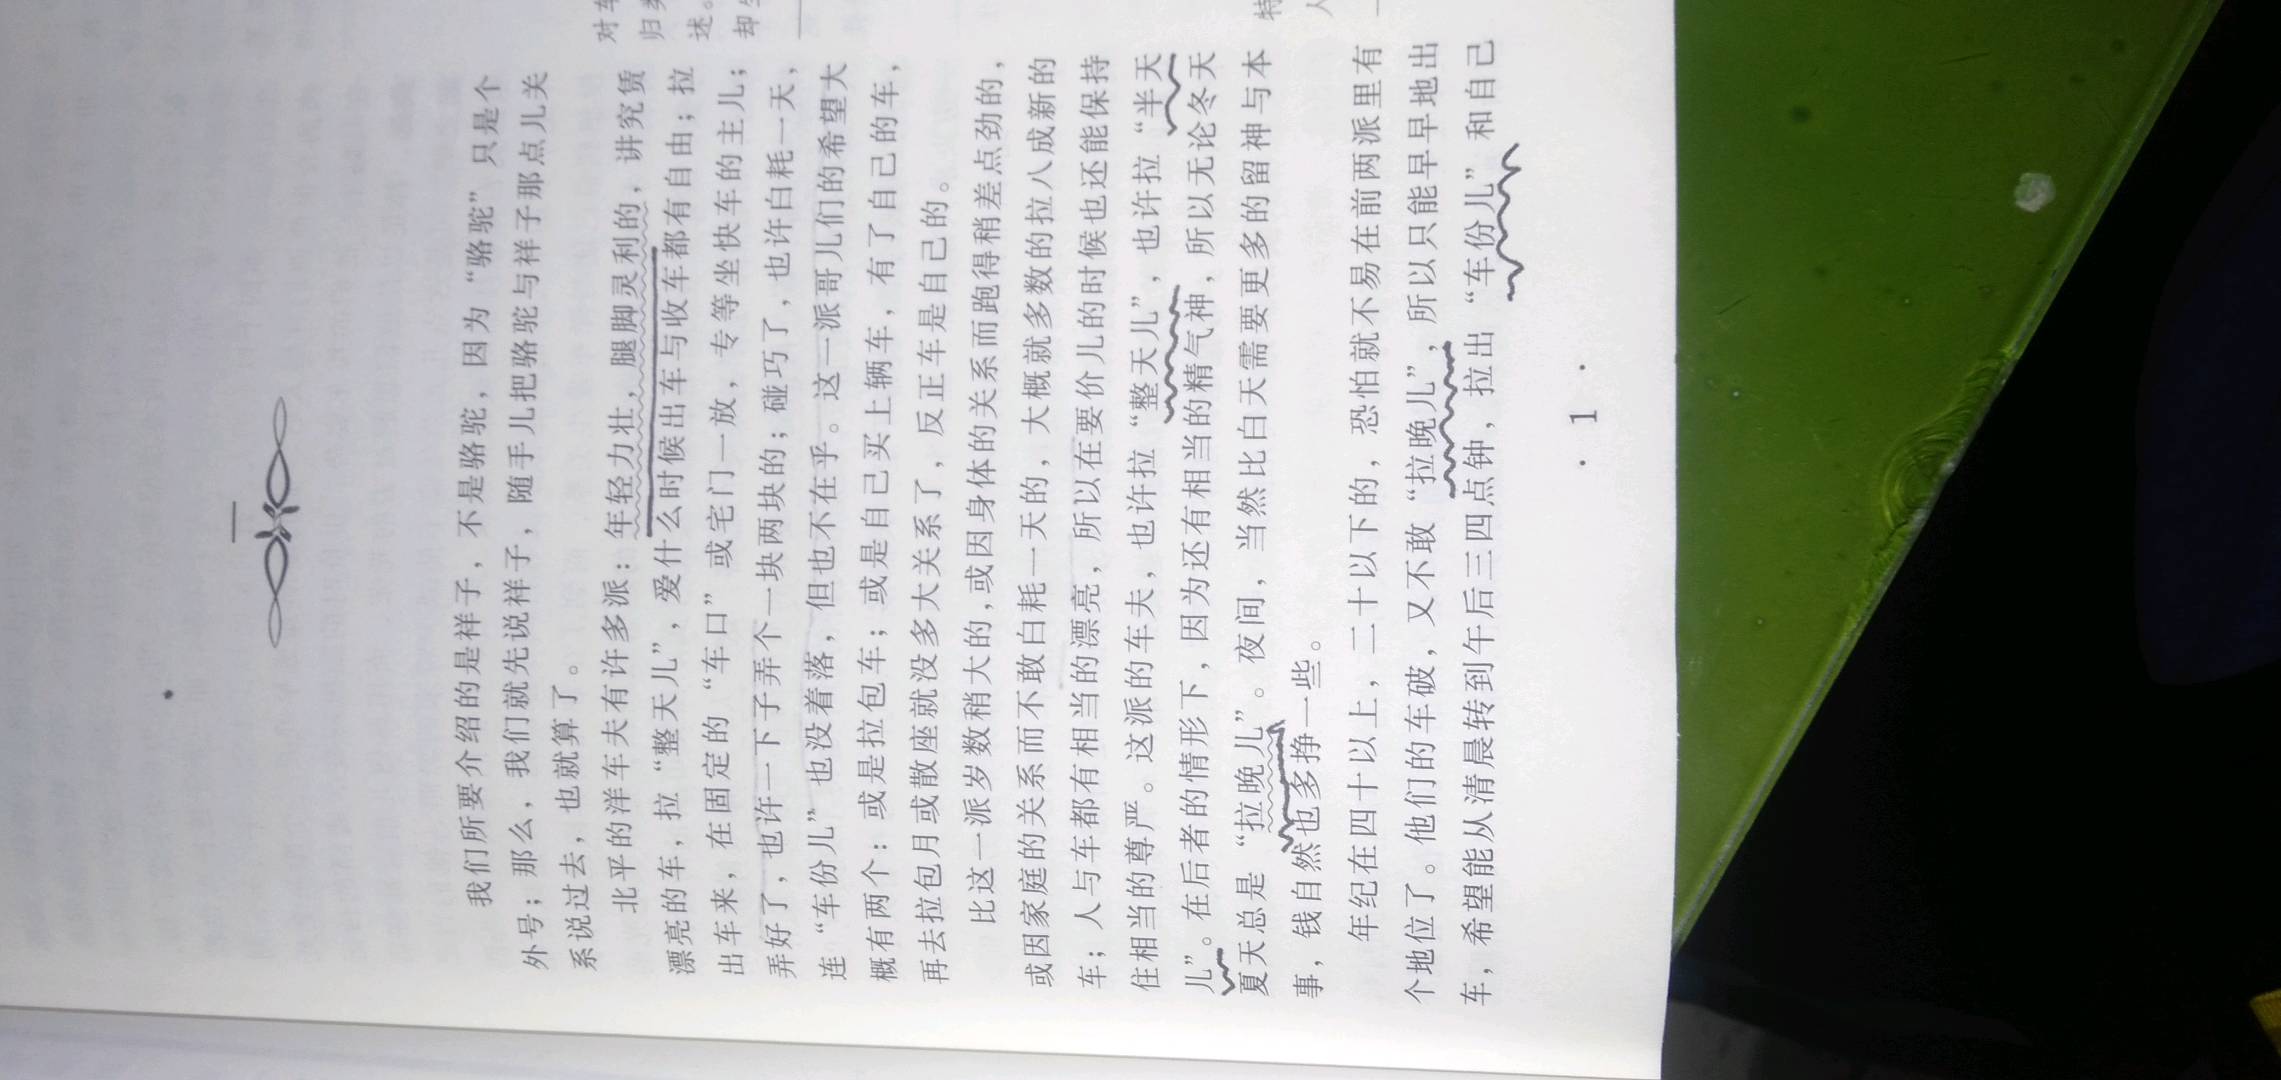 一
我们所要介绍的是祥子，不是骆驼，因为“骆驼”只是个
外号；那么，我们就先说祥子，随手儿把骆驼与祥子那点儿关
系说过去，也就算了。
北平的洋车夫有许多派：年轻力壮，腿脚灵利的，讲究赁
漂亮的车，拉“整天儿”，爱什么时候出车与收车都有自由；拉
出车来，在固定的“车口”或宅门一放，专等坐快车的主儿；
弄好了，也许一下子弄个一块两块的；碰巧了，也许白耗一天，
连“车份儿”也没着落，但也不在乎。这一派哥儿们的希望大
概有两个：或是拉包车；或是自己买上辆车，有了自己的车，
再去拉包月或散座就没多大关系了，反正车是自己的。
比这一派岁数稍大的，或因身体的关系而跑得稍差点劲的，
或因家庭的关系而不敢白耗一天的，大概就多数的拉八成新的
车；人与车都有相当的漂亮，所以在要价儿的时候也还能保持
住相当的尊严。这派的车夫，也许拉“整天儿”，也许拉“半天
儿”。在后者的情形下，因为还有相当的精气神，所以无论冬天
夏天总是“拉晚儿”。夜间，当然比白天需要更多的留神与本
事，钱自然也多挣一些。
年纪在四十以上，二十以下的，恐怕就不易在前两派里有
个地位了。他们的车破，又不敢“拉晚儿”，所以只能早早地出
车，希望能从清晨转到午后三四点钟，拉出“车份儿”和自己
·1·
对车
归类
述。
特
人